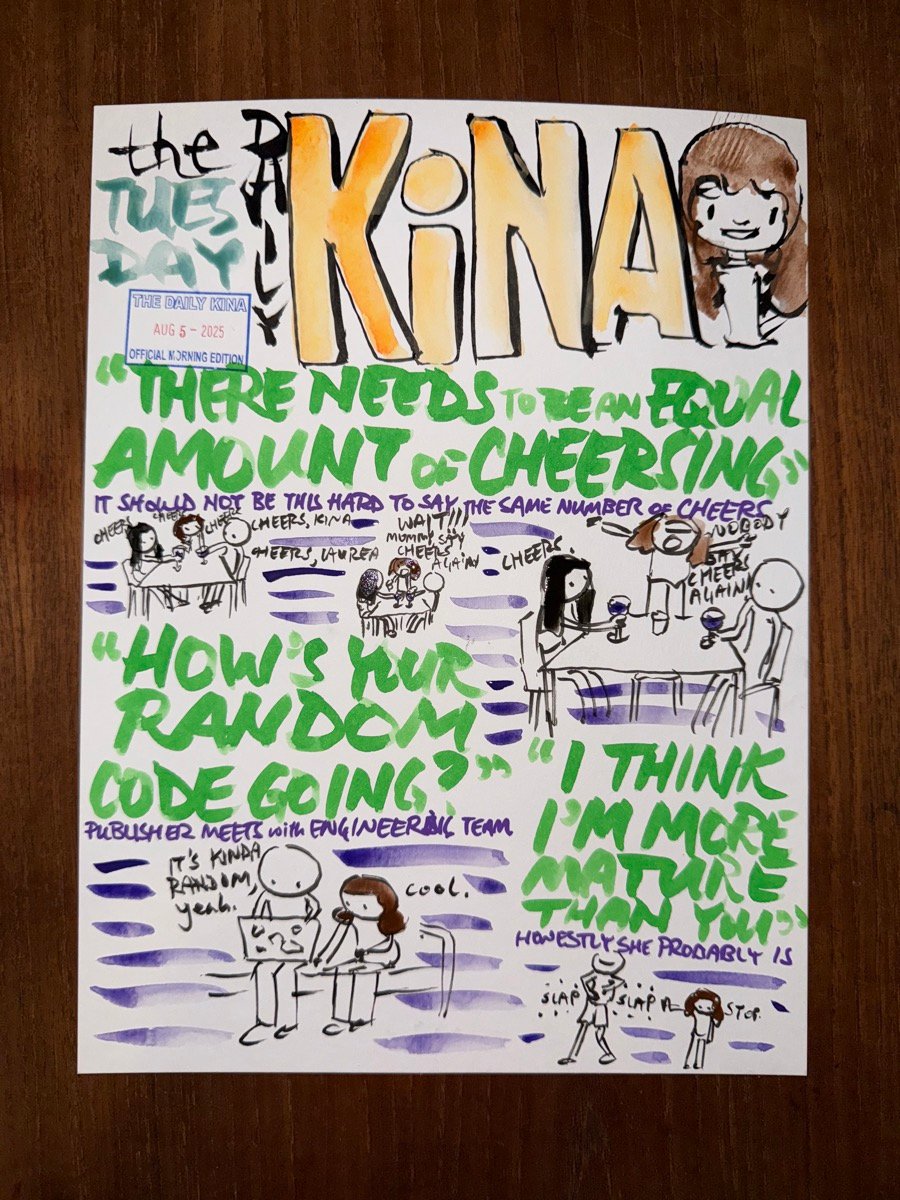 the
DAILY
KiNA
TUES
DAY
THE DAILY KINA
AUG 5 - 2025
OFFICIAL MORNING EDITION
“THERE NEEDS TO BE AN EQUAL
AMOUNT OF CHEERSING”
IT SHOULD NOT BE THIS HARD TO SAY THE SAME NUMBER OF CHEERS
CHEERS
CHEERS
CHEERS
CHEERS, KINA
CHEERS, LAUREA
WAIT!!!
MUMMY SAY
CHEERS
AGAIN
CHEERS
NOBODY
SAY
CHEERS
AGAIN!
“HOW'S YOUR
RANDOM
CODE GOING?”
PUBLISHER MEETS with ENGINEERING TEAM
IT'S KINDA
RANDOM,
yeah.
COOL.
“I THINK
I'M MORE
MATURE
THAN YOU”
HONESTLY SHE PROBABLY IS
SLAP
SLAP
STOP.